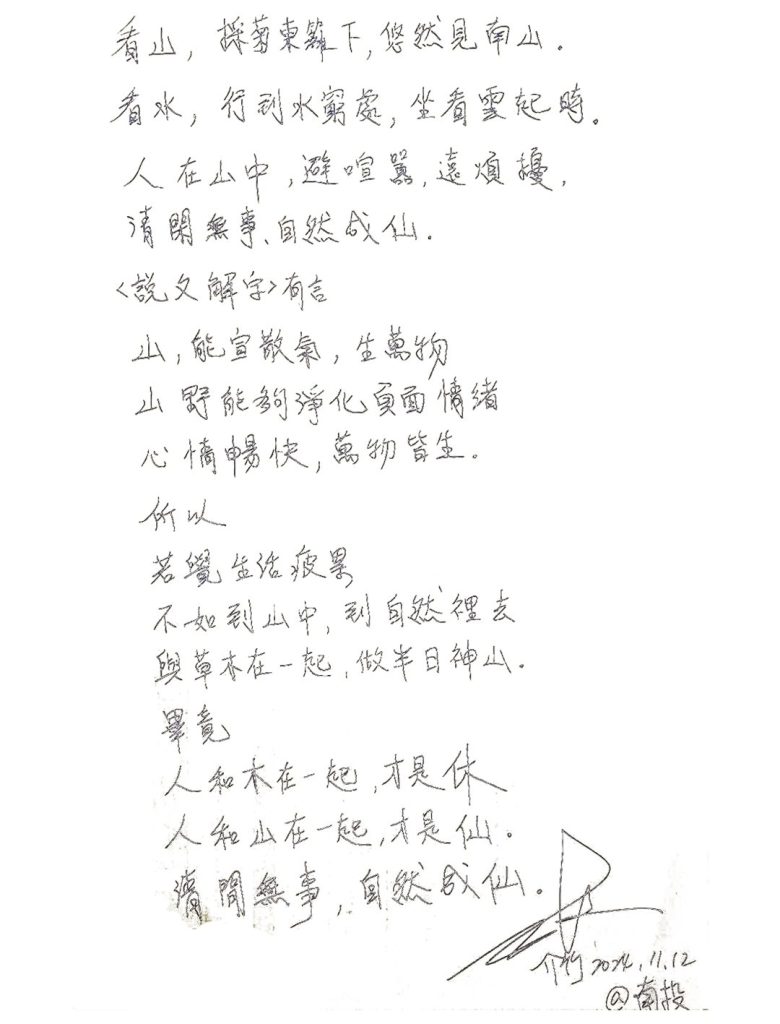 看山，採菊東籬下，悠然見南山。
看水，行到水窮處，坐看雲起時。
人在山中，避喧囂，遠煩擾，
清閒無事、自然成仙。
<說文解字>有言
山，能宣散氣，生萬物
山野能夠淨化負面情緒
心情暢快，萬物皆生。
所以
若覺生活疲累
不如到山中，到自然裡去
與草木在一起，做半日神山。
畢竟
人和木在一起，才是休
人和山在一起，才是仙。
清閒無事，自然成仙。
介竹 2024.11.12
@南投